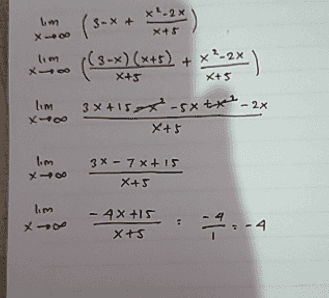 lim x→∞ (3-x + x²-2x / x+5)
lim x→∞ ((3-x)(x+5) / x+5 + x²-2x / x+5)
lim x→∞ 3x+15-x²-5x+x²-2x / x+5
lim x→∞ 3x-7x+15 / x+5
lim x→∞ -4x+15 / x+5 = -4 / 1 = -4